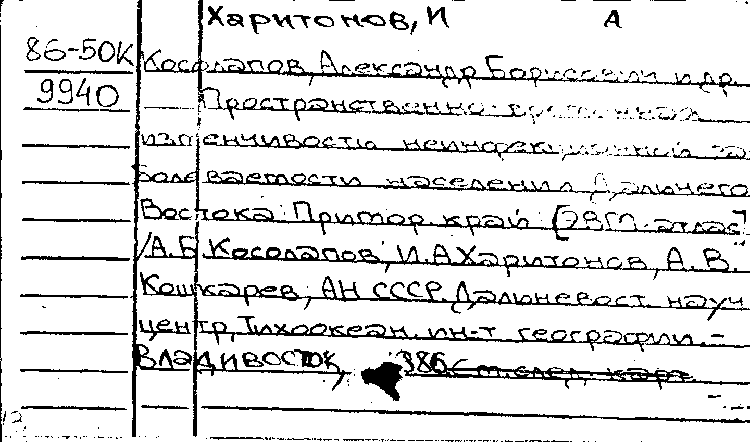 Харитонов, И А
86-50К Косолапов, Александр Борисович и др.
9940 Пространственно-временная
изменчивость неинфекционной за
болеваемости населения Дальнего
Востока: Примор. край [ЭВМ-атлас]
/А.Б. Косолапов, И.А Харитонов, А.В.
Кошкарев; АН СССР. Дальневост. науч.
центр, Тихоокеан. ин-т географии. -
Владивосток, 986 См. след. карт.